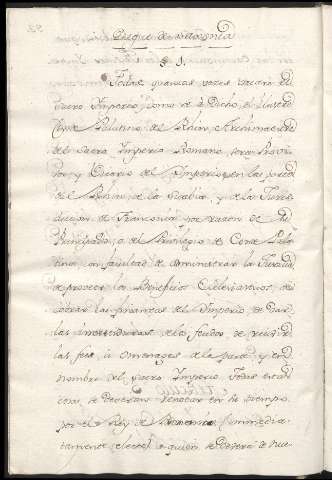 Duque de Saxonia
§ 1.
Todas quantas veces vacare el
Sacro Imperio, como va dicho, el Ilustre
Conde Palatino del Rhin, Archimaestre
del Sacro Imperio Romano, sera Provi
sor, y Vicario del Imperio en las partes
del Rhin, de la Suabia, y de la Juris
diccion de Franconia, por razon de su
Principado, o del Privilegio de Conde Pala
tino, con facultad de administrar la Justicia,
de proveer los Beneficios Eclesiasticos, de
cobrar las finanzas del Imperio, de dar
las de los feudos, de recivir
las fees u omenages de la parte, y en
nombre del Sacro Imperio. Todas estas
cosas se deveran renovar en su tiempo,
por el Rey de Romanos (immedia-
tamente electo) a quien se deverá de nue